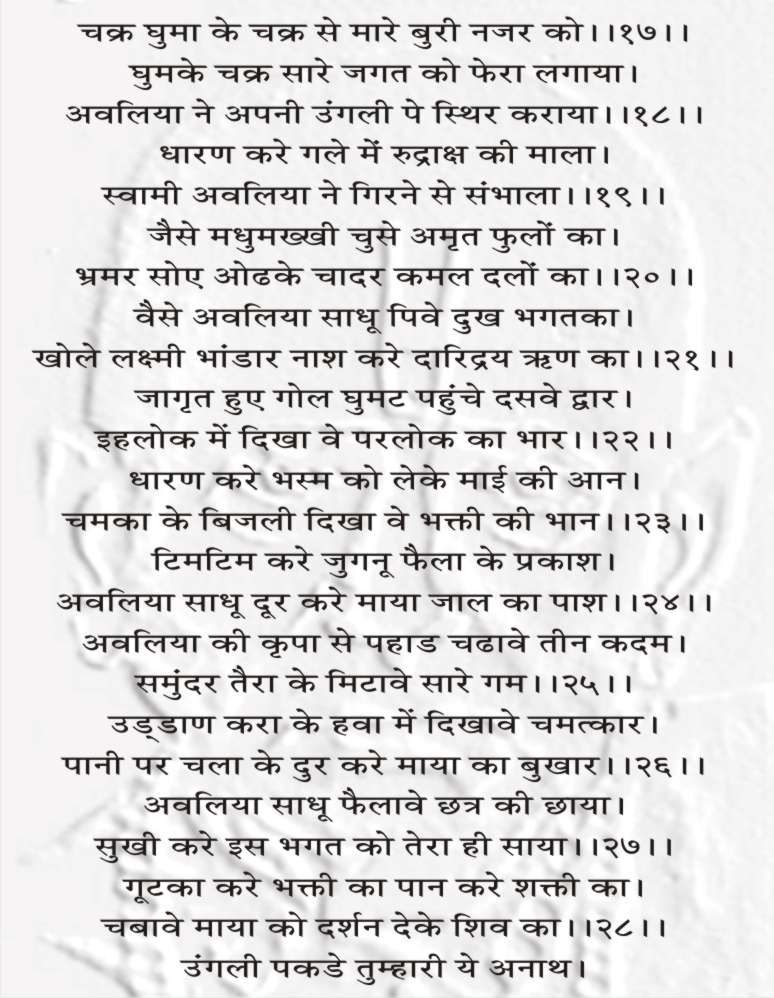 चक्र घुमा के चक्र से मारे बुरी नजर को।।१७।।
घुमके चक्र सारे जगत को फेरा लगाया।
अवलिया ने अपनी उंगली पे स्थिर कराया।।१८।।
धारण करे गले में रुद्राक्ष की माला।
स्वामी अवलिया ने गिरने से संभाला।।१९।।
जैसे मधुमख्खी चुसे अमृत फुलों का।
भ्रमर सोए ओढके चादर कमल दलों का।।२०।।
वैसे अवलिया साधू पिवे दुख भगतका।
खोले लक्ष्मी भांडार नाश करे दारिद्रय ऋण का।।२१।।
जागृत हुए गोल घुमट पहुंचे दसवे द्वार।
इहलोक में दिखा वे परलोक का भार।।२२।।
धारण करे भस्म को लेके माई की आन।
चमका के बिजली दिखा वे भक्ती की भान।।२३।।
टिमटिम करे जुगनू फैला के प्रकाश।
अवलिया साधू दूर करे माया जाल का पाश।।२४।।
अवलिया की कृपा से पहाड चढावे तीन कदम।
समुंदर तैरा के मिटावे सारे गम।।२५।।
उड्डाण करा के हवा में दिखावे चमत्कार।
पानी पर चला के दुर करे माया का बुखार।।२६।।
अवलिया साधू फैलावे छत्र की छाया।
सुखी करे इस भगत को तेरा ही साया।।२७।।
गूटका करे भक्ती का पान करे शक्ती का।
चबावे माया को दर्शन देके शिव का।।२८।।
उंगली पकडे तुम्हारी ये अनाथ।